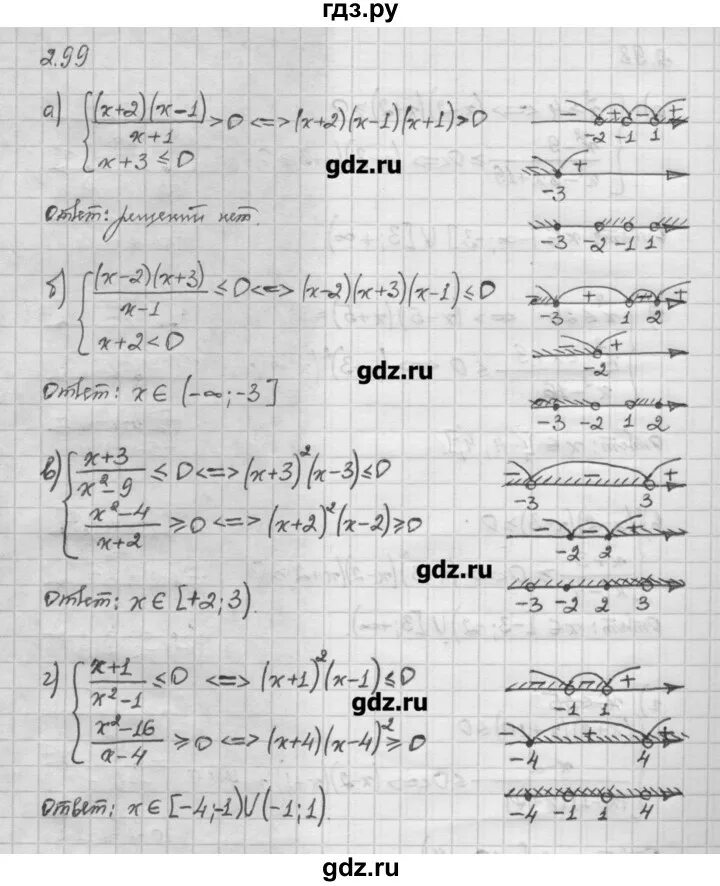 гдз.ру
2.99
а) { (x+2)(x-1)/(x+1) > 0 <=> (x+2)(x-1)(x+1) > 0
x+3 ≤ 0
- + - +
-2 -1 1
- +
-3
gdz.ru
Ответ: решений нет.
-3 -2 -1 1
б) { (x-2)(x+3)/(x-1) ≤ 0 <=> (x-2)(x+3)(x-1) ≤ 0
x+2 < 0
- + - +
-3 1 2
- +
-2
gdz.ru
Ответ: x ∈ (-∞; -3]
-3 -2 1 2
в) { (x+3)/(x²-9) ≤ 0 <=> (x+3)²(x-3) ≤ 0
(x²-4)/(x+2) ≥ 0 <=> (x+2)²(x-2) ≥ 0
- - +
-3 3
- - +
-2 2
gdz.ru
Ответ: x ∈ [+2; 3).
-3 -2 2 3
г) { (x+1)/(x²-1) ≤ 0 <=> (x+1)²(x-1) ≤ 0
(x²-16)/(x-4) ≥ 0 <=> (x+4)(x-4)² ≥ 0
- - +
-1 1
- + +
-4 4
gdz.ru
Ответ: x ∈ [-4; -1) ∪ (-1; 1).
-4 -1 1 4
gdz.ru